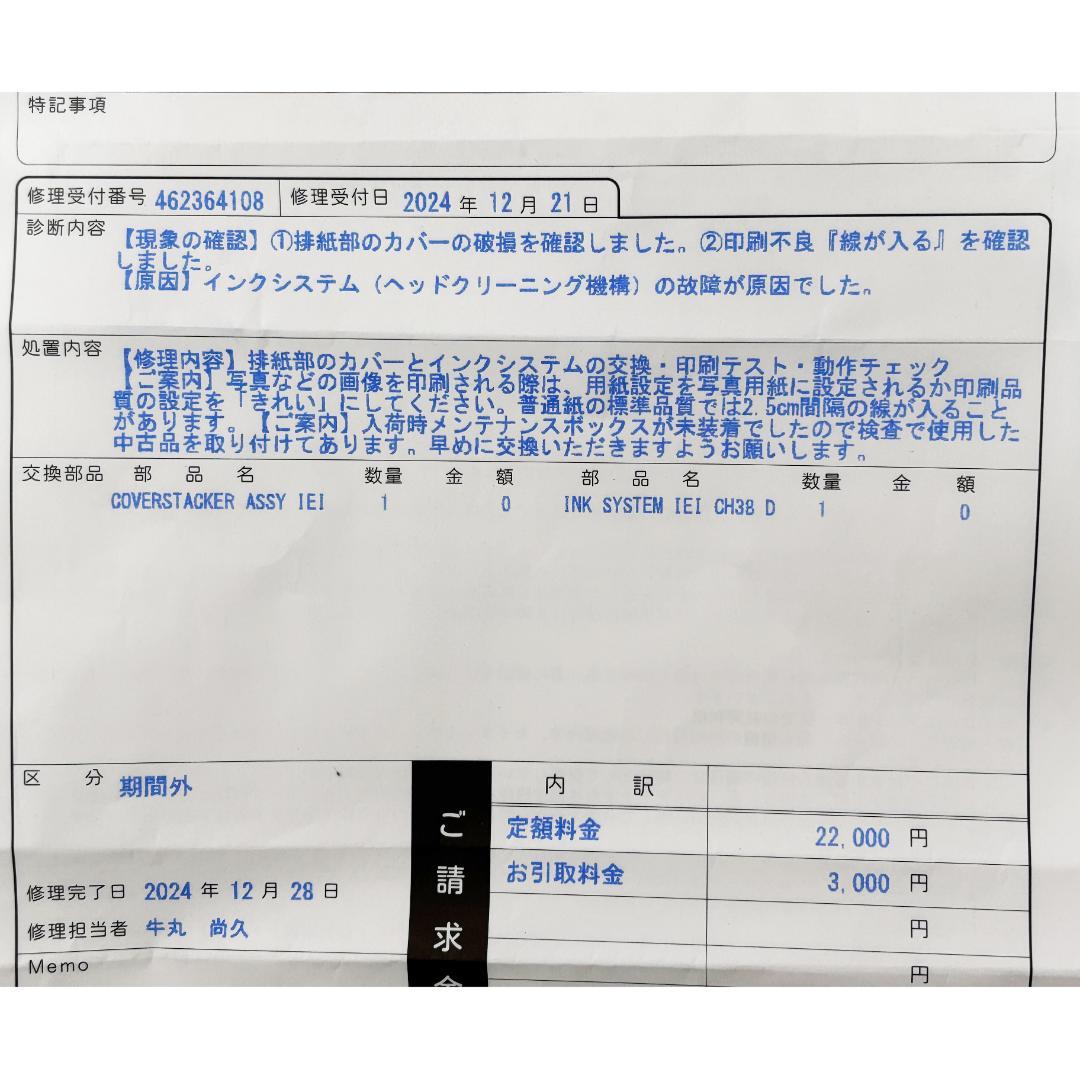 特記事項
修理受付番号 462364108 修理受付日 2024 年 12 月 21 日
診断内容 【現象の確認】①排紙部のカバーの破損を確認しました。②印刷不良『線が入る』を確認
しました。
【原因】インクシステム（ヘッドクリーニング機構）の故障が原因でした。
処置内容 【修理内容】排紙部のカバーとインクシステムの交換・印刷テスト・動作チェック
【ご案内】写真などの画像を印刷される際は、用紙設定を写真用紙に設定されるか印刷品
質の設定を「きれい」にしてください。普通紙の標準品質では2.5cm間隔の線が入ること
があります。【ご案内】入荷時メンテナンスボックスが未装着でしたので検査で使用した
中古品を取り付けてあります。早めに交換いただきますようお願いします。
交換部品 部品名 数量 金額 部品名 数量 金額
COVERSTACKER ASSY IEI 1 0 INK SYSTEM IEI CH38 D 1 0
区分 期間外
修理完了日 2024 年 12 月 28 日
修理担当者 牛丸 尚久
Memo
ご請求金
内訳
定額料金 22,000 円
お引取料金 3,000 円
円
円